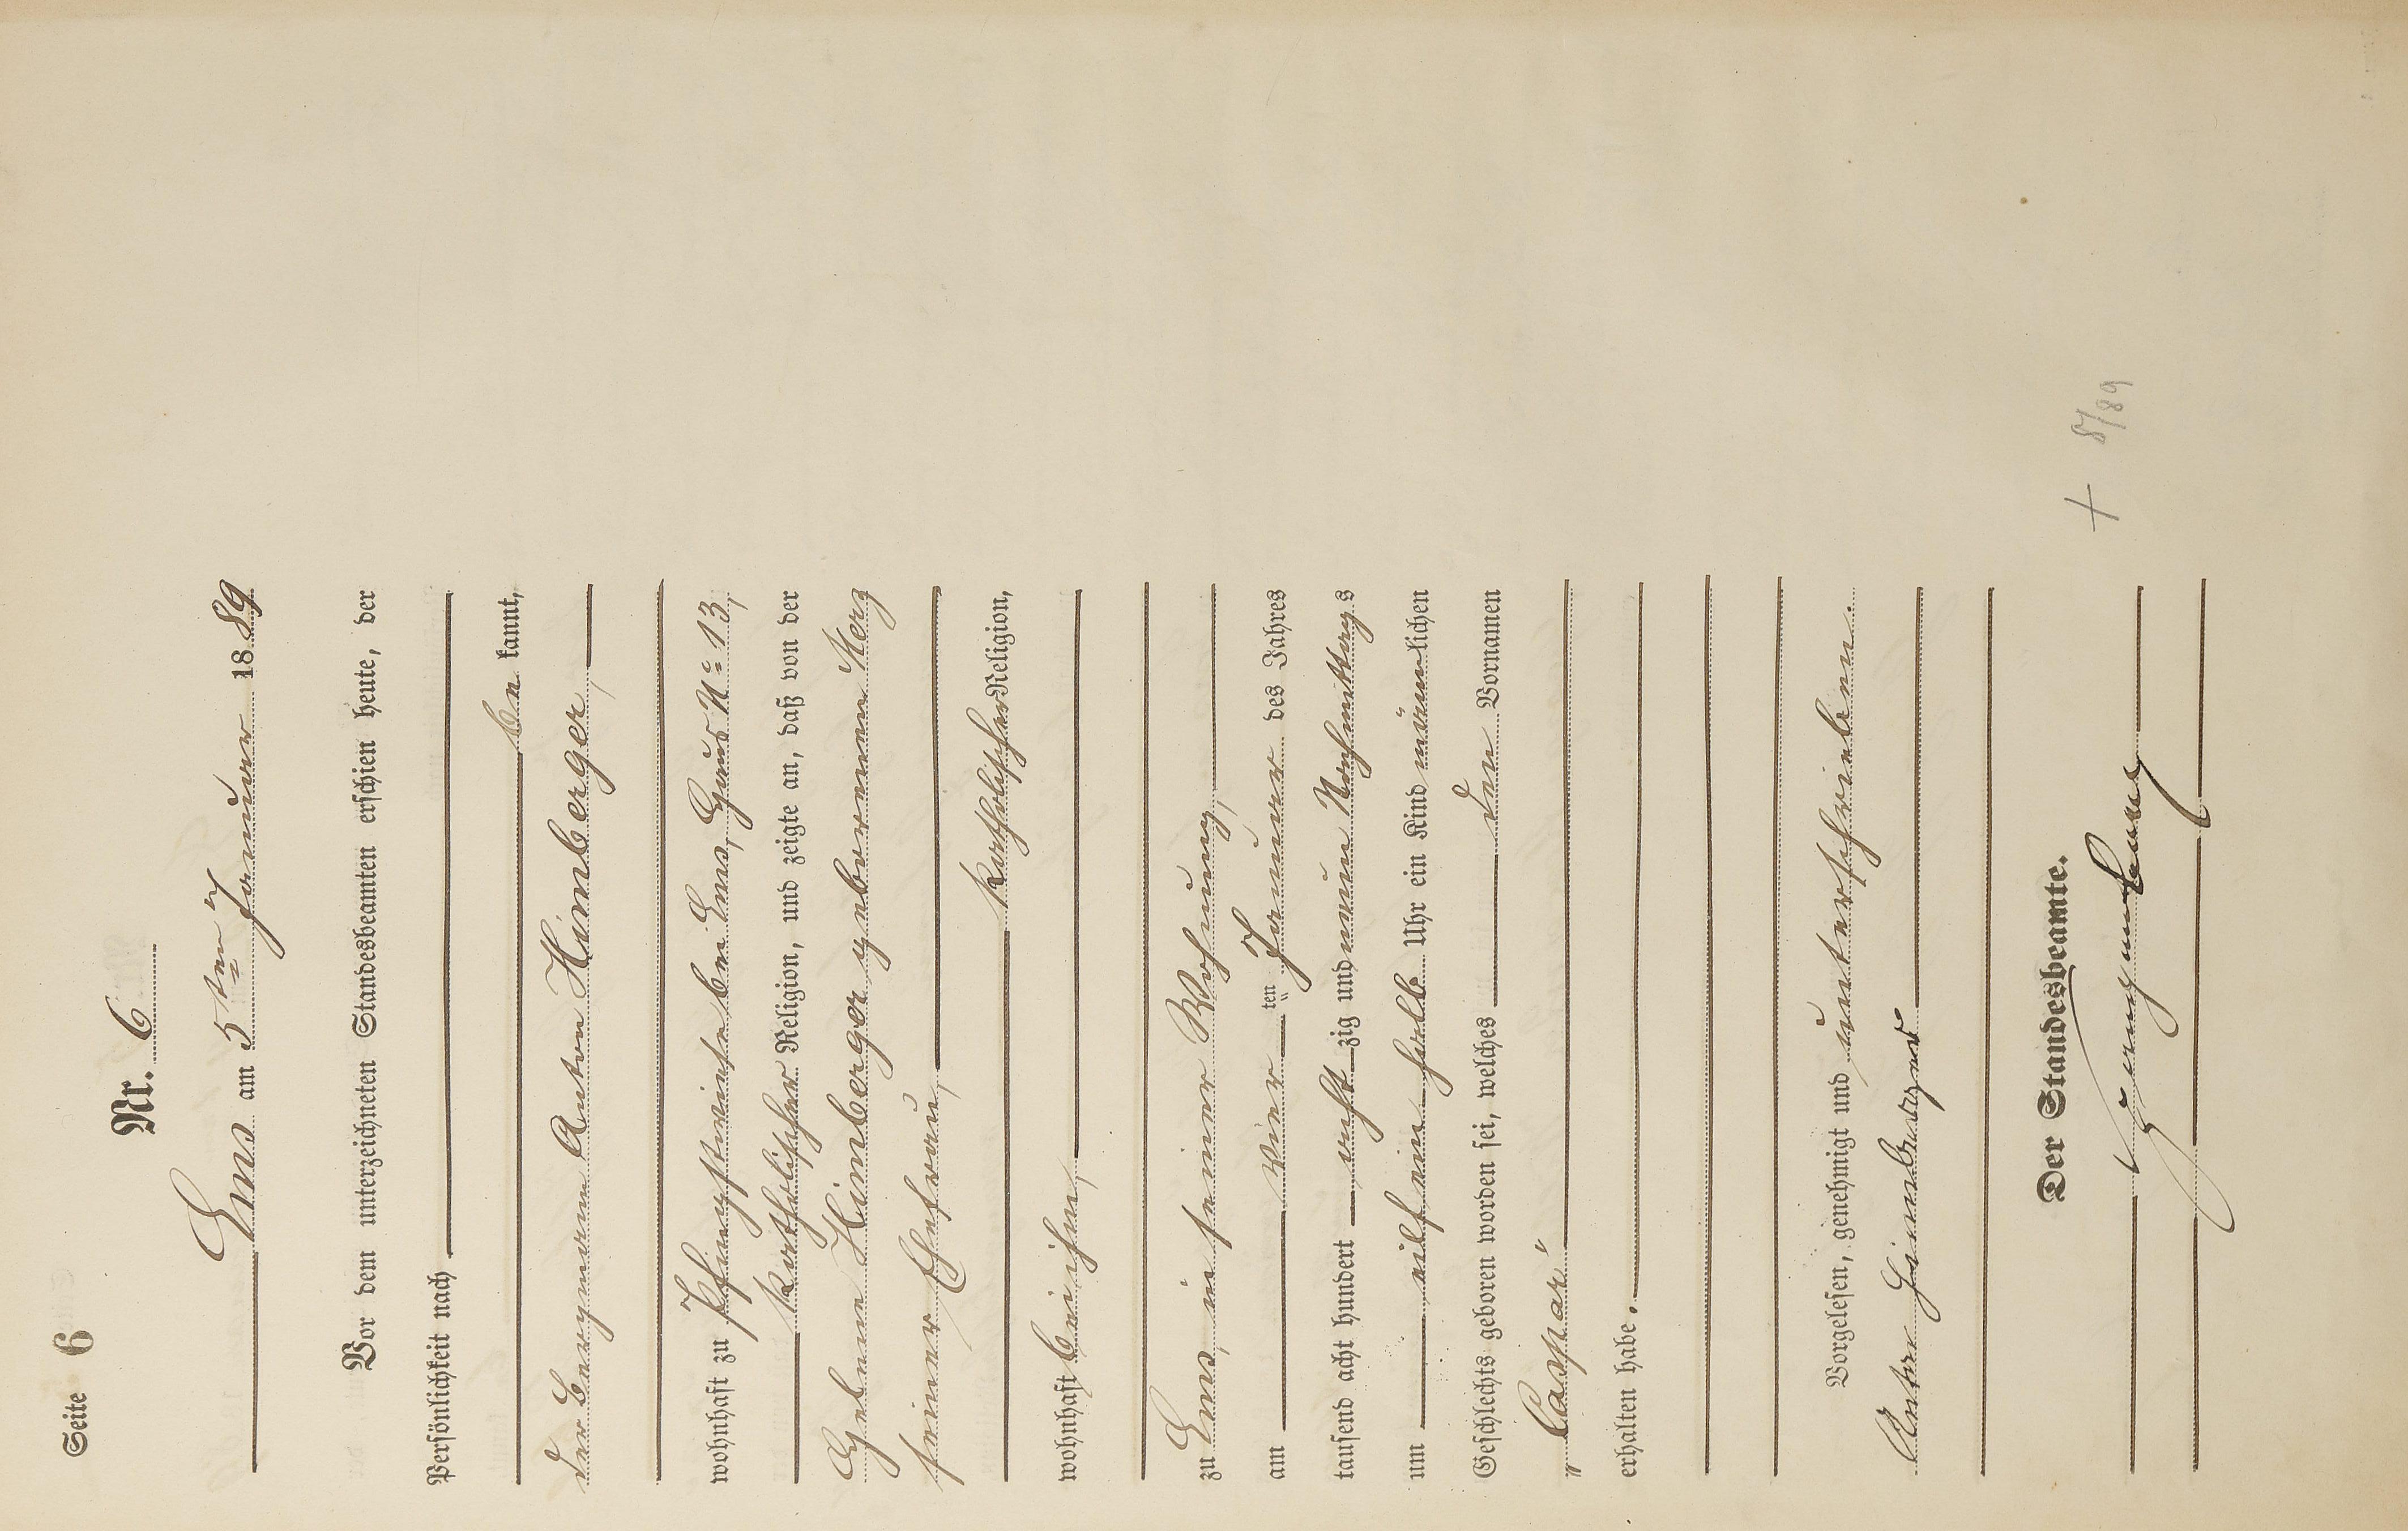 Seite 6
Nr. 6
Ems am 5ten Januar 1889
Vor dem unterzeichneten Standesbeamten erschien heute, der
Persönlichkeit nach
be kannt,
der Bergmann Anton Himberger,
wohnhaft zu Pfingstwiese bei Ems, Haus No 13,
katholischer Religion, und zeigte an, daß von der
Helene Himberger geborenen Herz
seiner Ehefrau,
katholischer Religion,
wohnhaft bei ihm,
zu Ems, in seiner Wohnung,
am vier ten Januar des Jahres
tausend acht hundert acht zig und neun Nachmittags
um eilf ein halb Uhr ein Kind männlichen
Geschlechts geboren worden sei, welches den Vornamen
"Caspar"
erhalten habe.
Vorgelesen, genehmigt und unterschrieben.
Anton Himberger
Der Standesbeamte.
+ 8/89